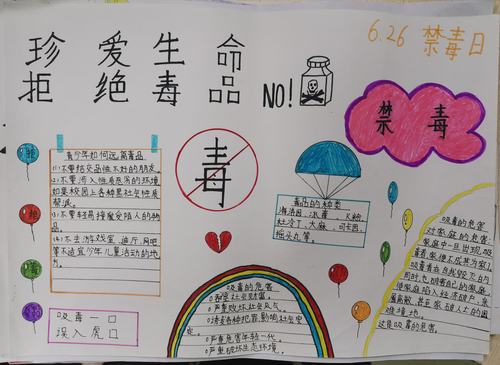 珍爱生命
拒绝毒品
NO!
6.26 禁毒日
禁毒
拒
绝
毒
品
青少年如何远离毒品
(1)不要结交品性不好的朋友。
(2)不要涉入性质恶劣的环境
如某校园上各种黑社会性质
帮派。
(3)不要轻易接受陌人的物
品。
(4)不去游戏室、迪厅、网吧
等不适宜少年儿童活动的地
方。
吸毒一口
误入虎口
毒
毒品的种类
海洛因、冰毒、
杜冷丁、大麻、可卡因、
摇头丸等。
吸毒的危害
①耗费社会财富。
②严重败坏社会风气。
③诱发各种犯罪,影响社会安
定。
④严重危害年轻一代。
⑤严重破坏生态环境。
吸毒的危害
对家庭的危害:
家庭中一旦出现吸
毒者,家便不成其为家了,
吸毒者在自我毁灭的
同时,也破害自己的家庭,
使家庭陷入经济破产、亲
属离散、甚至家破人亡的困
难境地。
这是吸毒的危害